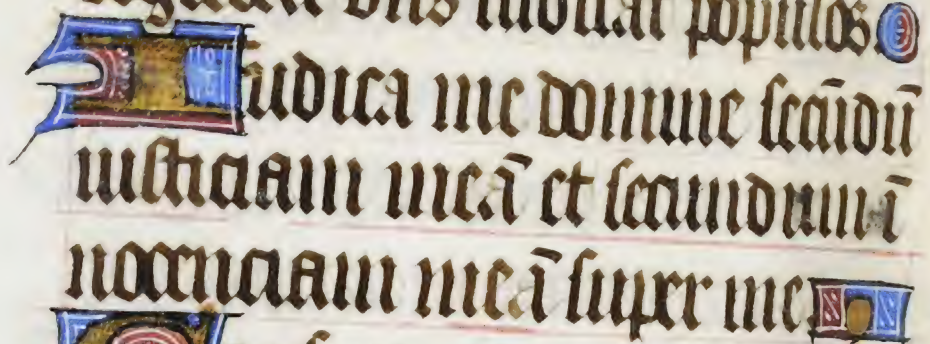 dñs iudicat populos
Iudica me domine secũdũ
iusticiam meã et secundum ĩ
nocenciam meã super me